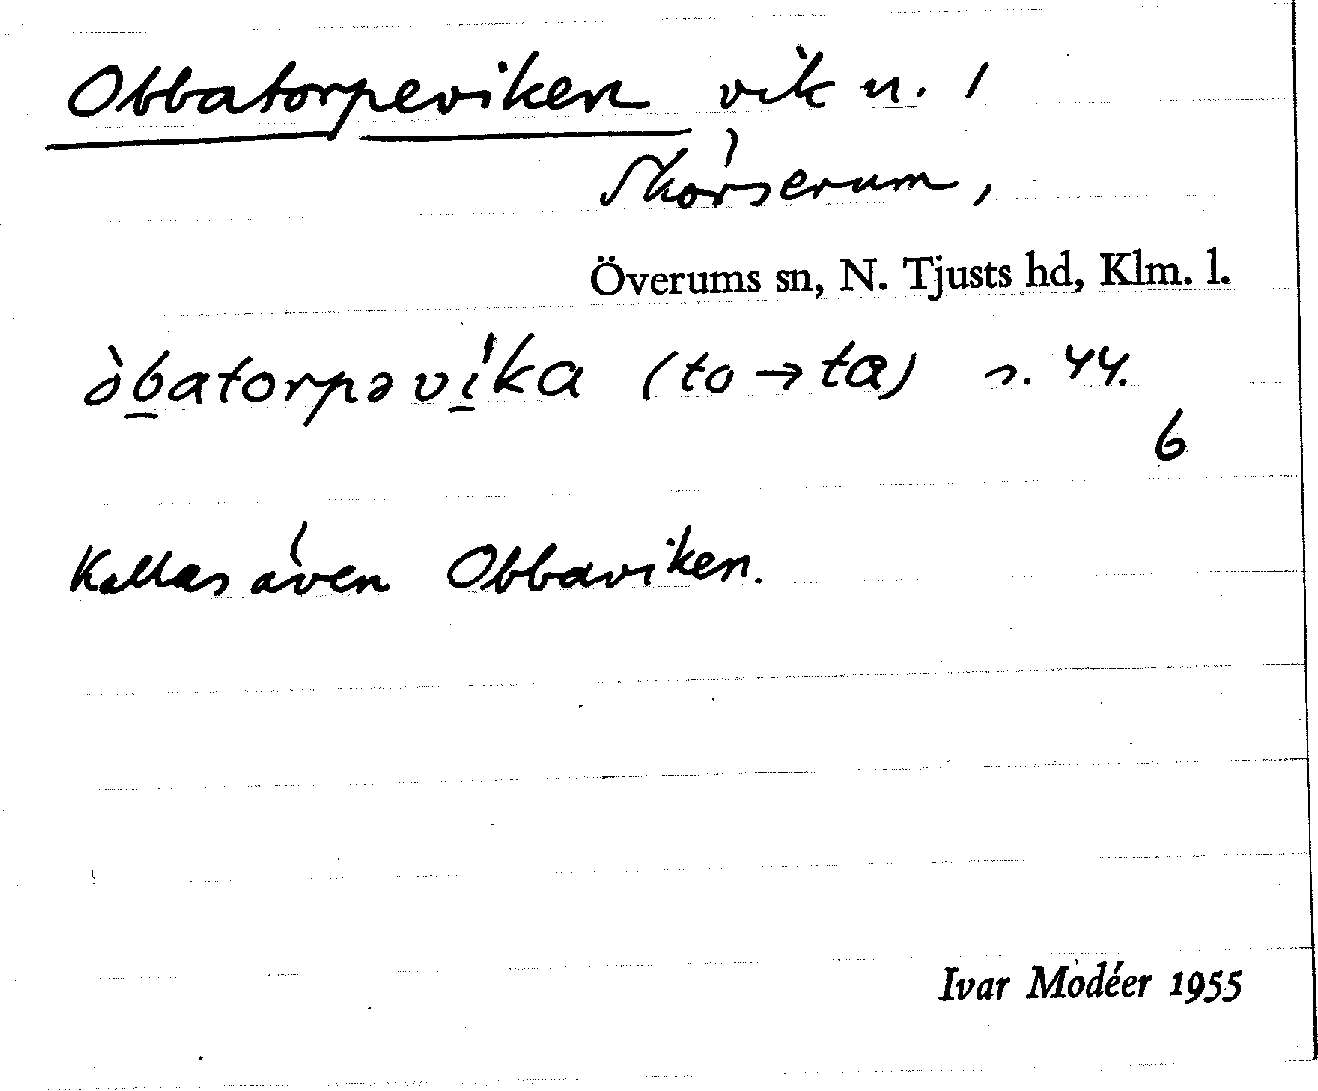 Obbatorpeviken vik n. 1
Skörserum,
Överums sn, N. Tjusts hd, Klm. l.
òb̲atorpəvi̲ka (to → ta) s. 44.
6
Kallas även Obbaviken.
Ivar Modéer 1955